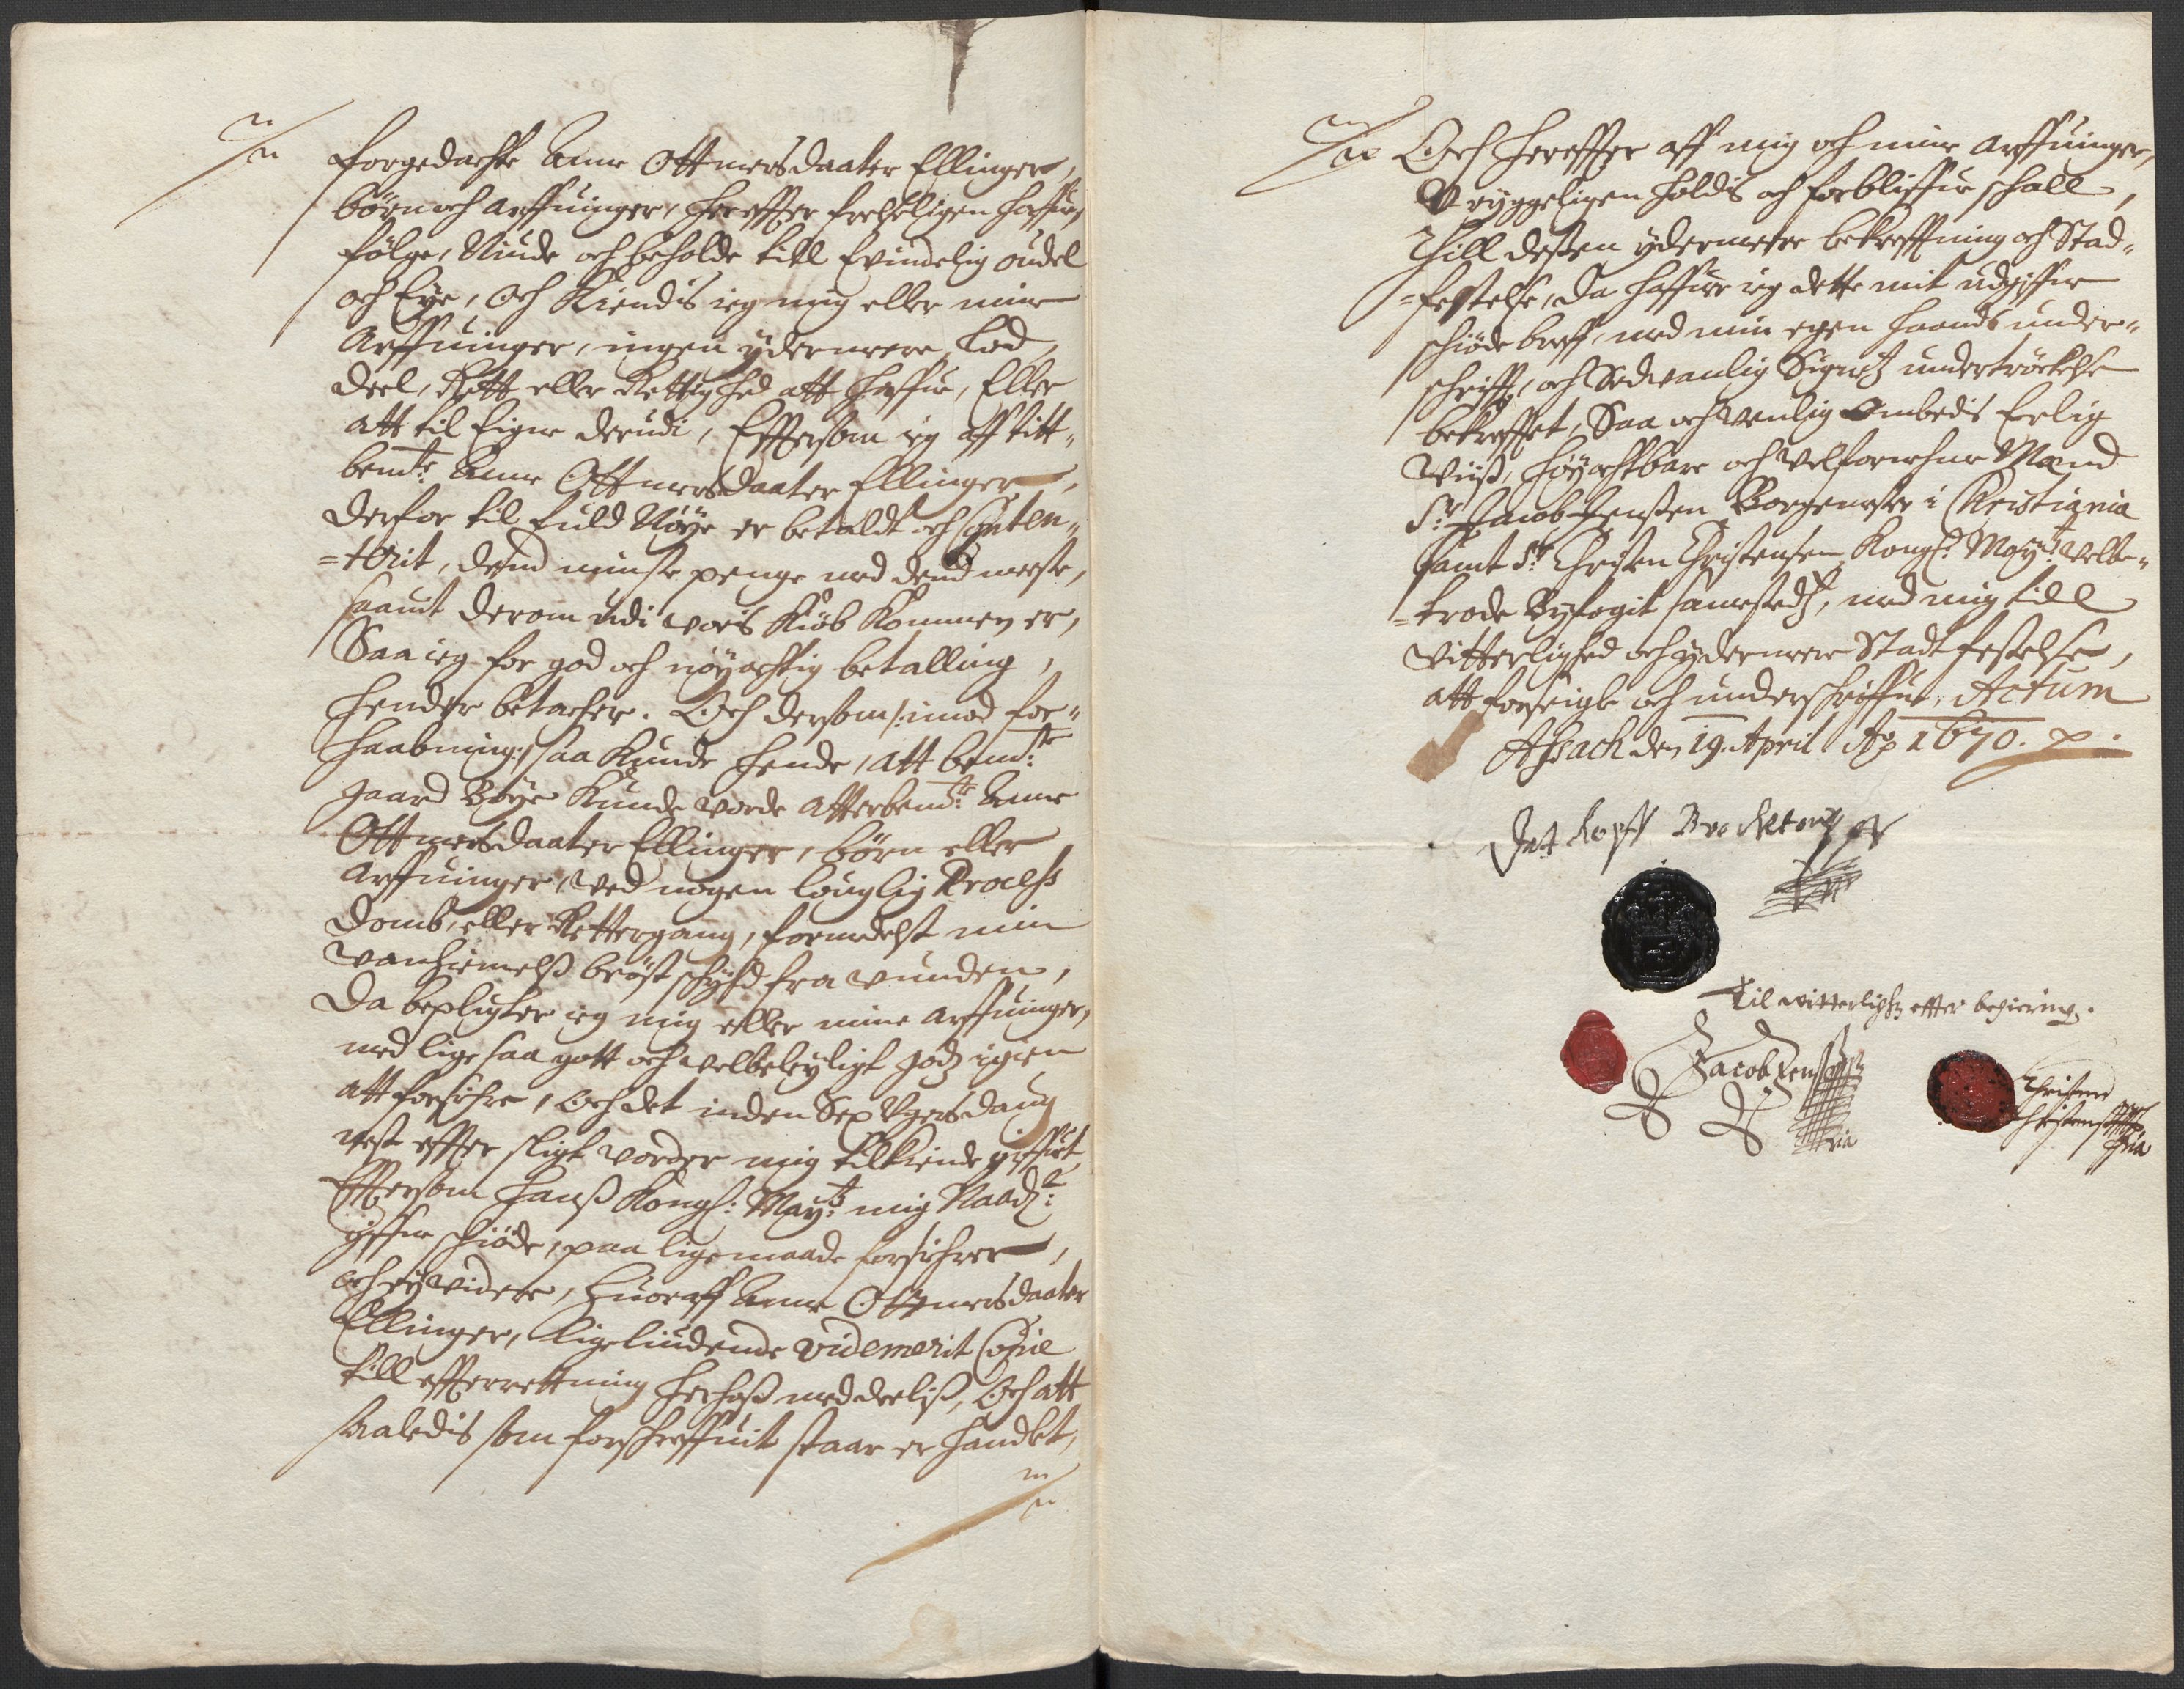 forgedachte Anne Ottmersdaater Ellinger,
börn och arffuinger, herefter freheligen haffue,
følge, Niude och beholde till Evindelig oudel
och Eye, Och Kiendis ieg mig eller mine
Arffuinger, ingen ydermere Lod,
deel, Rett eller Rettighed att haffue, Eller
att til Eigne derudi, Effersom ieg aff titt„
bemte: Anne Ottmersdaater Ellinger,
derfor til fuld Nöye er betaldt och Conten„
=terit, dend minste penge med dend meste,
saauit derom udi voris Kiöb Kommen er,
Saa ieg for god och nöyachtig betalling,
hender betacher. Och dersom /:imod for„
haabning:/ saa Kunde hende, att bemte:
gaard Böye Kunde vorde atterbemte: Anne
Ottmersdaater Ellinger, börn eller
Arffuinger, ved nogen louglig Process
Domb, eller Rettergang, formedelst min
vanhiemelß bröst schyld fra vunden,
Da bepligter ieg mig eller mine Arffuinger,
med lige saa gott och velbeleyligt godz igien
att forsichre, Och det inden Sex Ugers daug
nest effter sligt vorder mig tilkiende giffuet,
Effersom Hanß Kongl: Mayts: mig Naadr:
giffne schiöde, paa lige maade forsichrer,
och ey videre, Huoraff Anne Ottmersdaater
Ellinger, Ligeliudende videmerit Copie
till effterrettning herhoß meddeeliß, Och att
saaledis som forschreffuit staar er handlet,
Och hereffter aff mig och mine Arffuinger,
Uryggeligen holdis och forbliffue schall,
Till deßen ydermere bekreffning och Stad„
=festelse, Da haffuer ieg dette mit udgiffne
schiöde breff, med min egen haands under„
schrifft, och Sedvanlig Signetz undertröckelse
bekrefftet, Saa och venlig Ombedis Erlig
Viiß, höyachtbare och velfornehme Mænd
Sr: Jacob Jenßen Borgemester i Christiania
samt Sr: Christen Christensen Kongl: Mayts: velbe„
=trode Byfogit sammestedz, med mig till
vitterlighed och ydermere Stadtfestelse,
att forseigle och underschriffue, Actum
den 19. April Ao 1670.
Til vitterlighed effter begiering.
Jacob Jenssen
Christen
Christensen